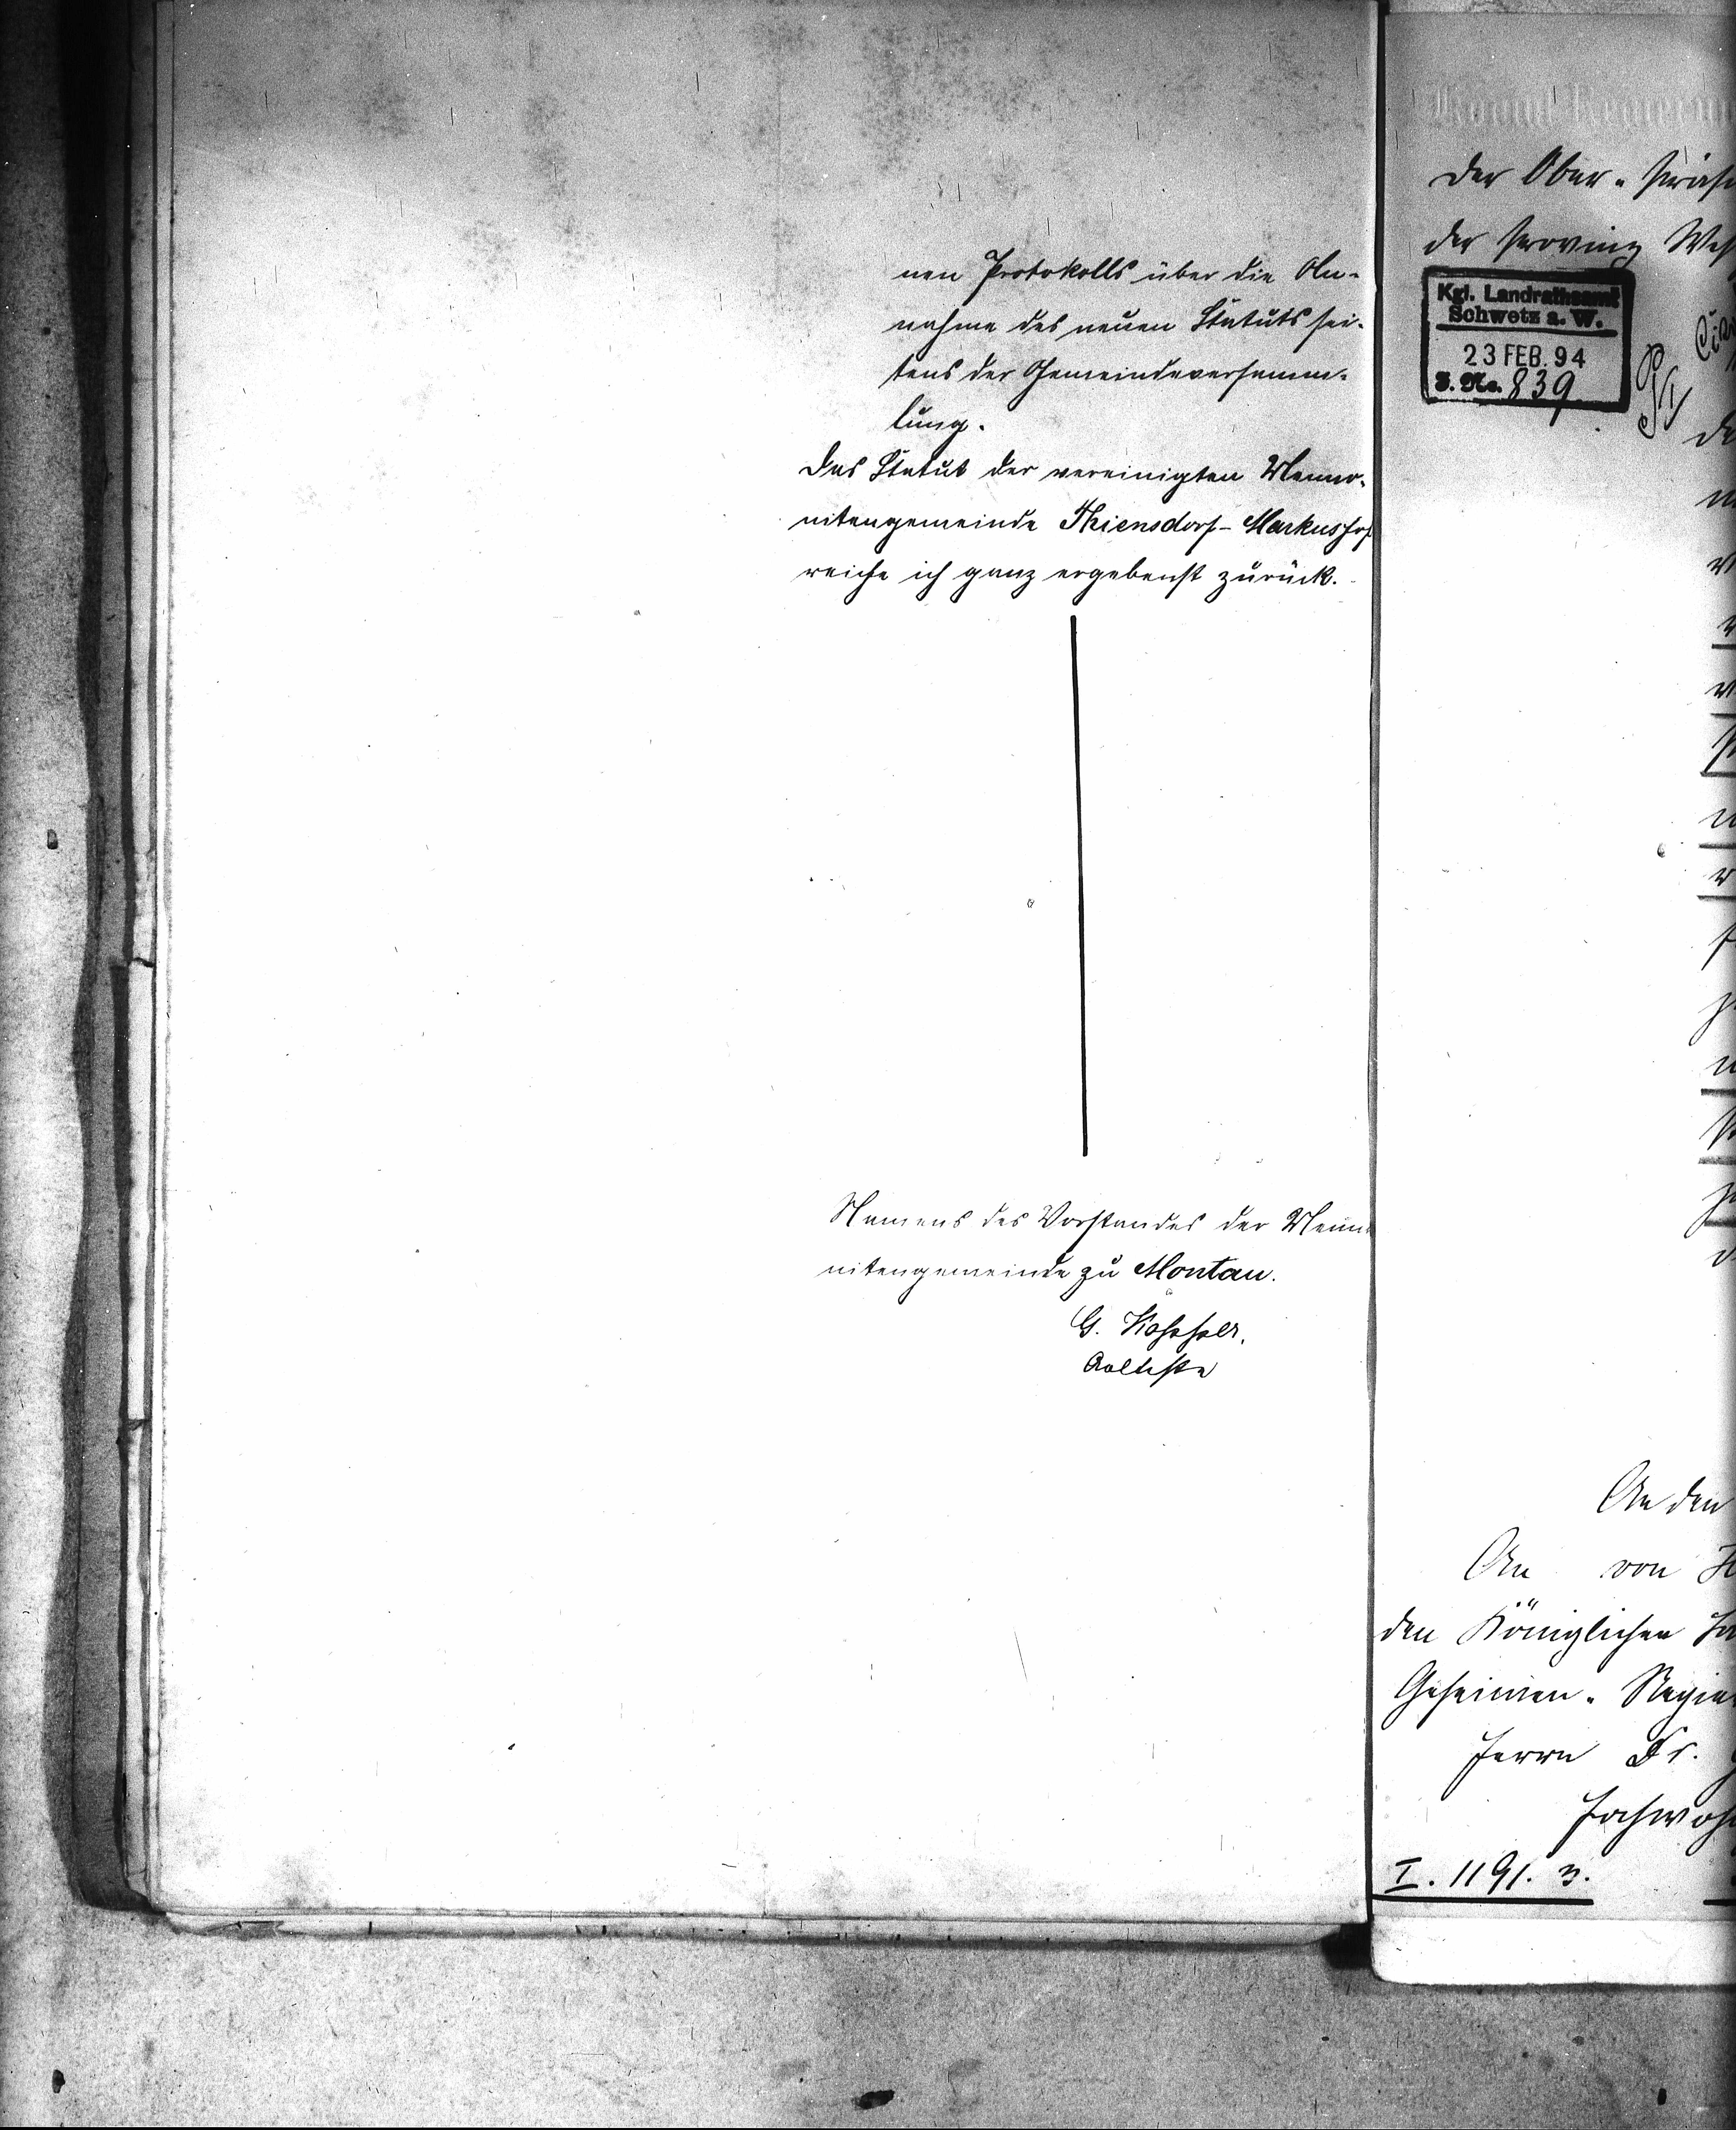 nen Protokolls über die An-
nahme des neuen Statuts sei-
tens der Gemeindeversamm-
lung.
Das Statut der vereinigten Menno-
nitengemeinde Thiensdorf-Markushof
reiche ich ganz ergebenst zurück.
Namens des Vorstandes der Menno
nitengemeinde zu Montau.
G.
Aelteste
Der Ober-Präsi
der Provinz Wes
Kgl. Landrathsamt
Schwetz a. W.
23 FEB. 94
J. No. 839
An den
An von
den Königlichen
Geheimen-Regie
Herrn Dr.
Hochwoh
I. 1191. 3.